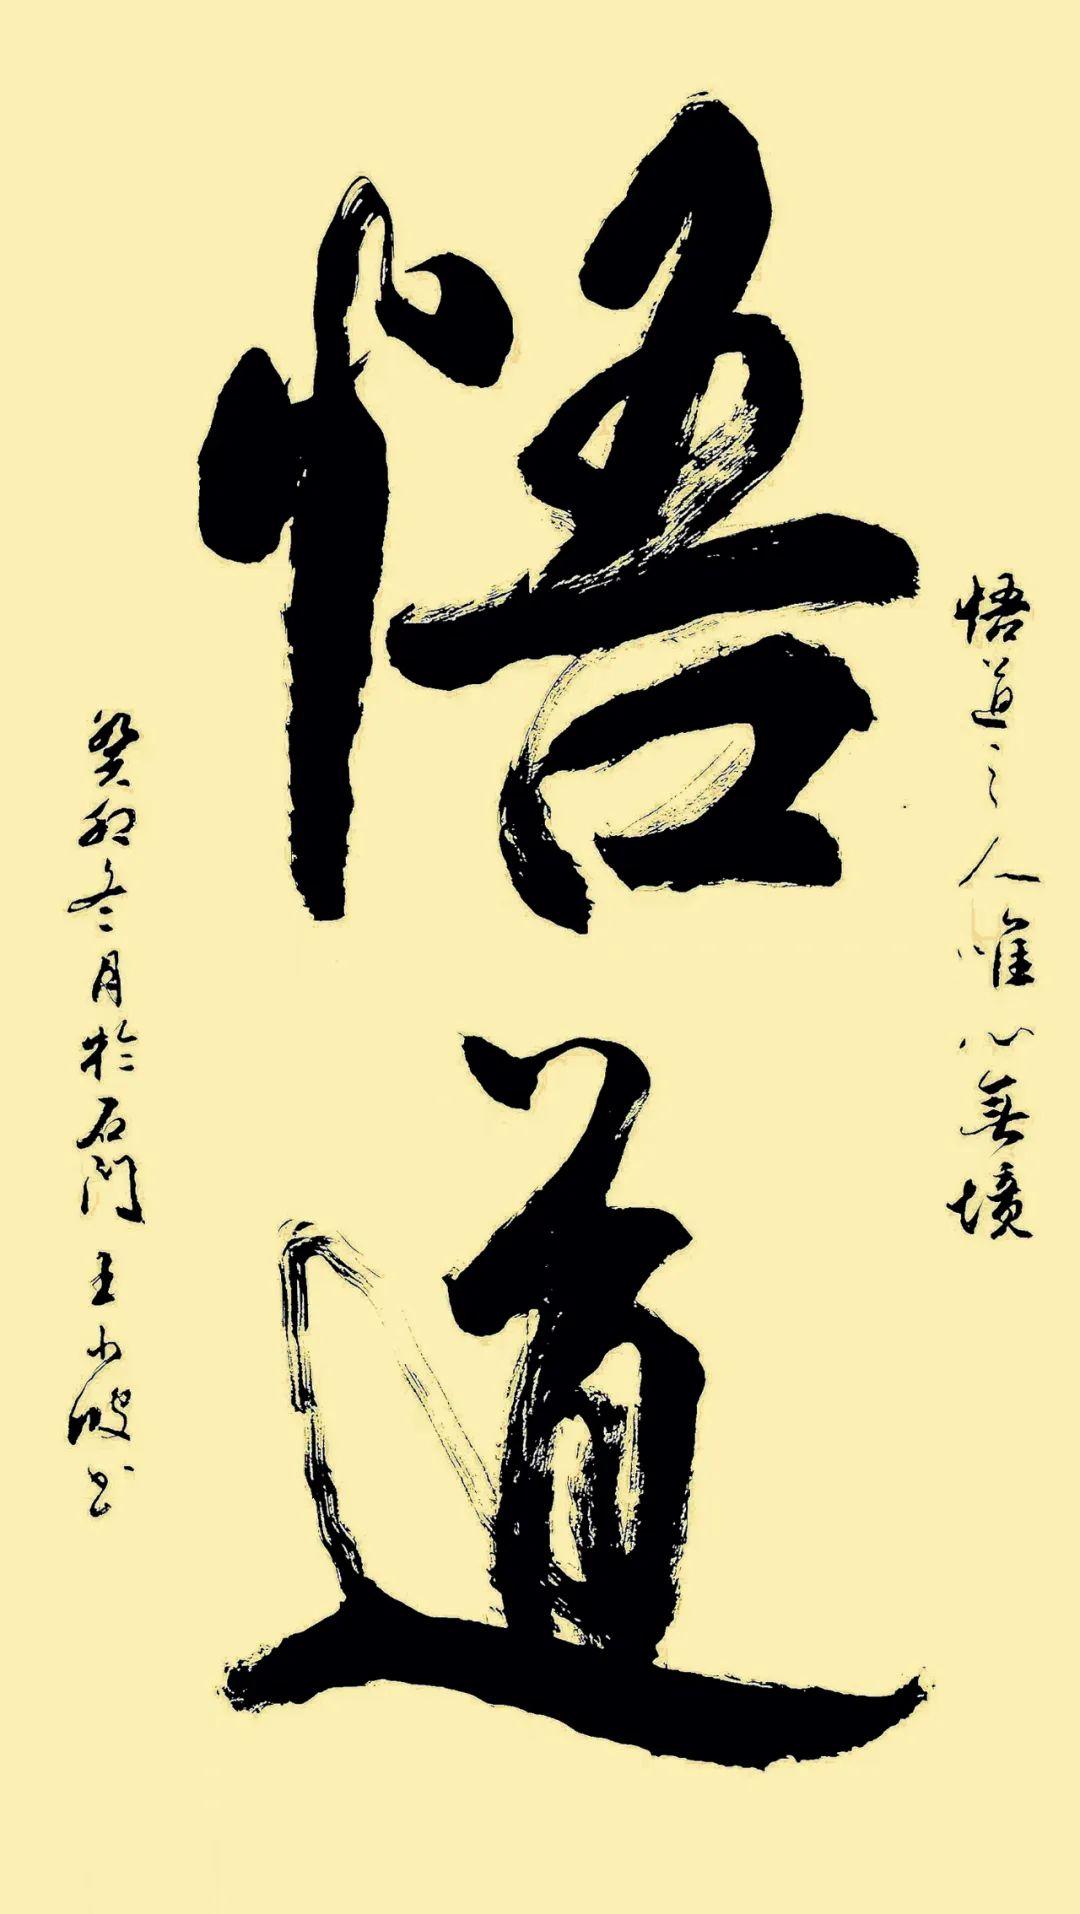 悟道之人唯心無境
悟道
癸卯冬月於石門王小波书